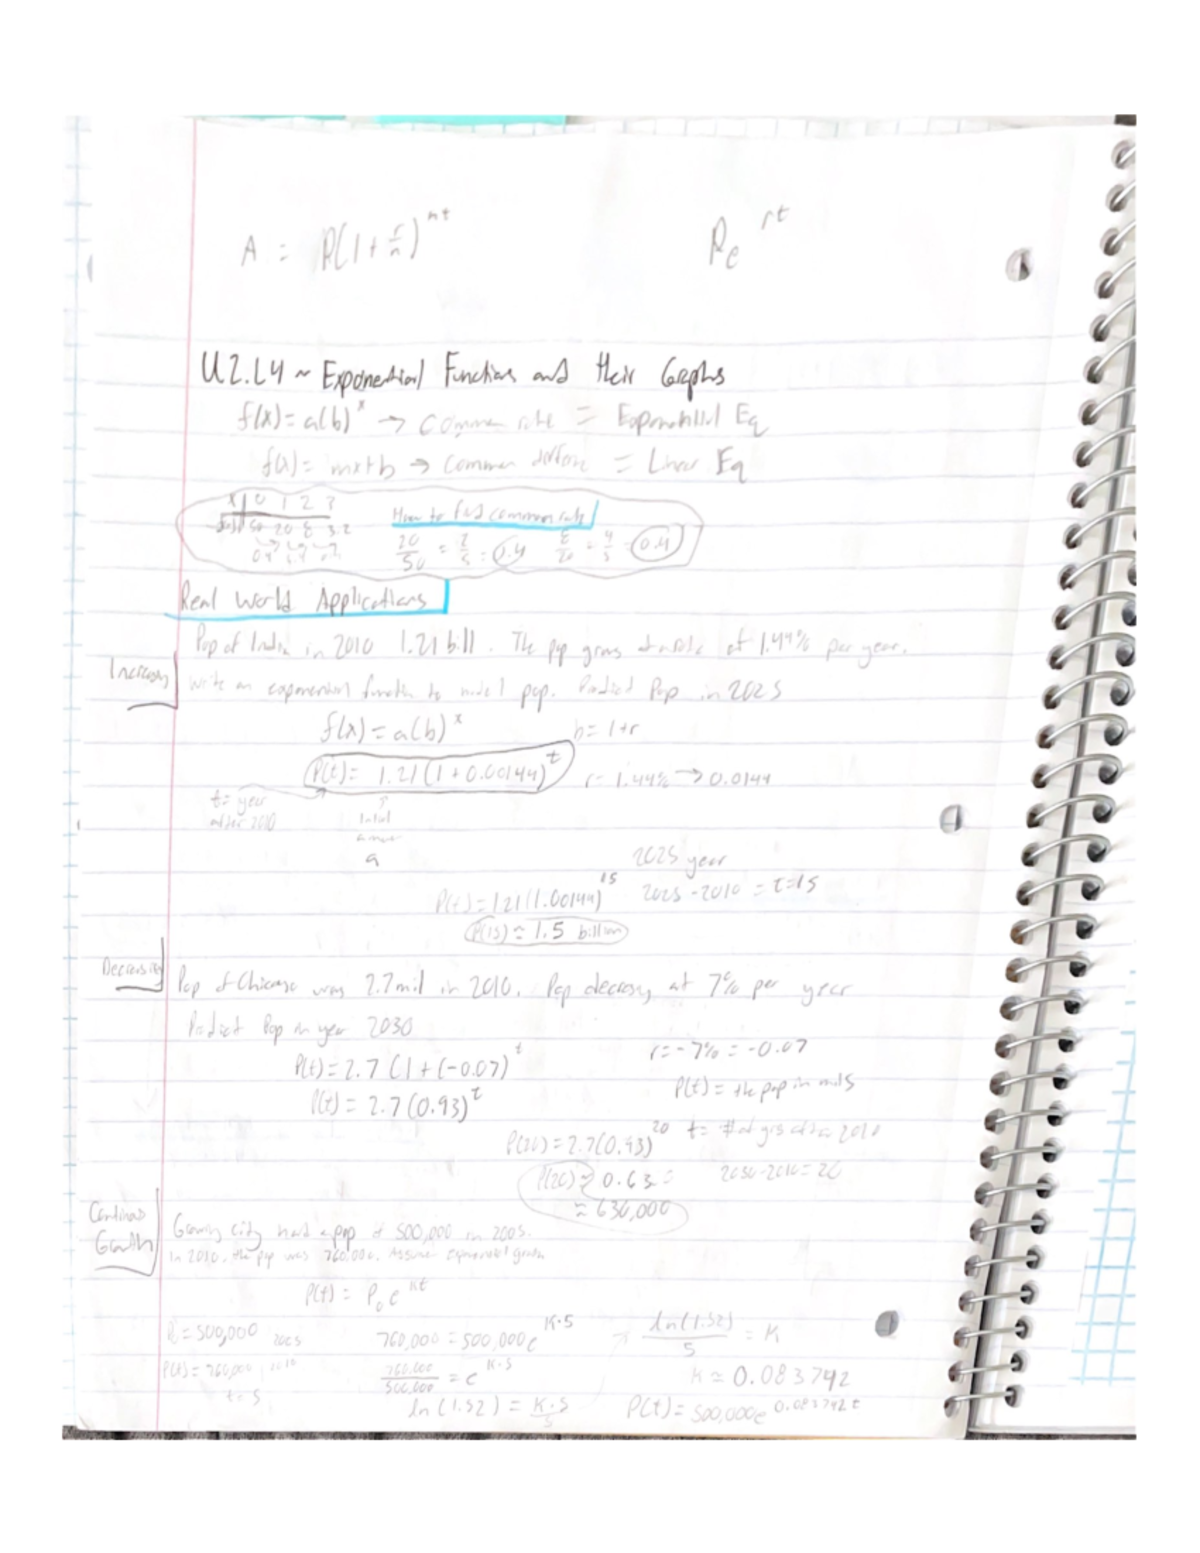 A = P(1+r/n)^nt    Pe^rt
U2.L4 ~ Exponential Functions and their Graphs
f(x) = a(b)^x → Common rate = Exponential Eq
f(x) = mx+b → Common = Linear Eq
x | 0 1 2 3
f(x) | 50 20 8 3.2
How to find common rate
20/50 = 2/5 = 0.4    8/20 = 4/5 = 0.4
Real World Applications
Pop of India in 2010 1.21 bill. The pop grows at a rate of 1.44% per year.
Increasing
write an exponential function to model pop. Predict Pop in 2025
f(x) = a(b)^x    b = 1+r
P(t) = 1.21(1+0.00144)^t    r = 1.44% → 0.0144
t = year
after 2010
Initial
a
2025 year
P(t) = 1.21(1.00144)^15    2025-2010 = t=15
P(15) ≈ 1.5 billion
Decreasing
Pop of Chicago was 2.7 mil in 2010. Pop at 7% per year
Predict Pop in year 2030
P(t) = 2.7(1+(-0.07)^t    r = -7% = -0.07
P(t) = 2.7(0.93)^t    P(t) = the pop in mils
P(20) = 2.7(0.93)^20    t = # of yrs after 2010
P(20) ≈ 0.63    2030-2010 = 20
≈ 630,000
Growth
Growing city had a pop of 500,000 in 2005.
In 2010, the pop was 760,000. Assume exponential growth
P(t) = P₀e^kt
P₀ = 500,000 2005    760,000 = 500,000e^K·5    ln(1.52)/5 = K
P(t) = 760,000 2010    760,000/500,000 = e^K·5    K ≈ 0.083742
t = 5    ln(1.52) = K·5/5    P(t) = 500,000e^0.083742t